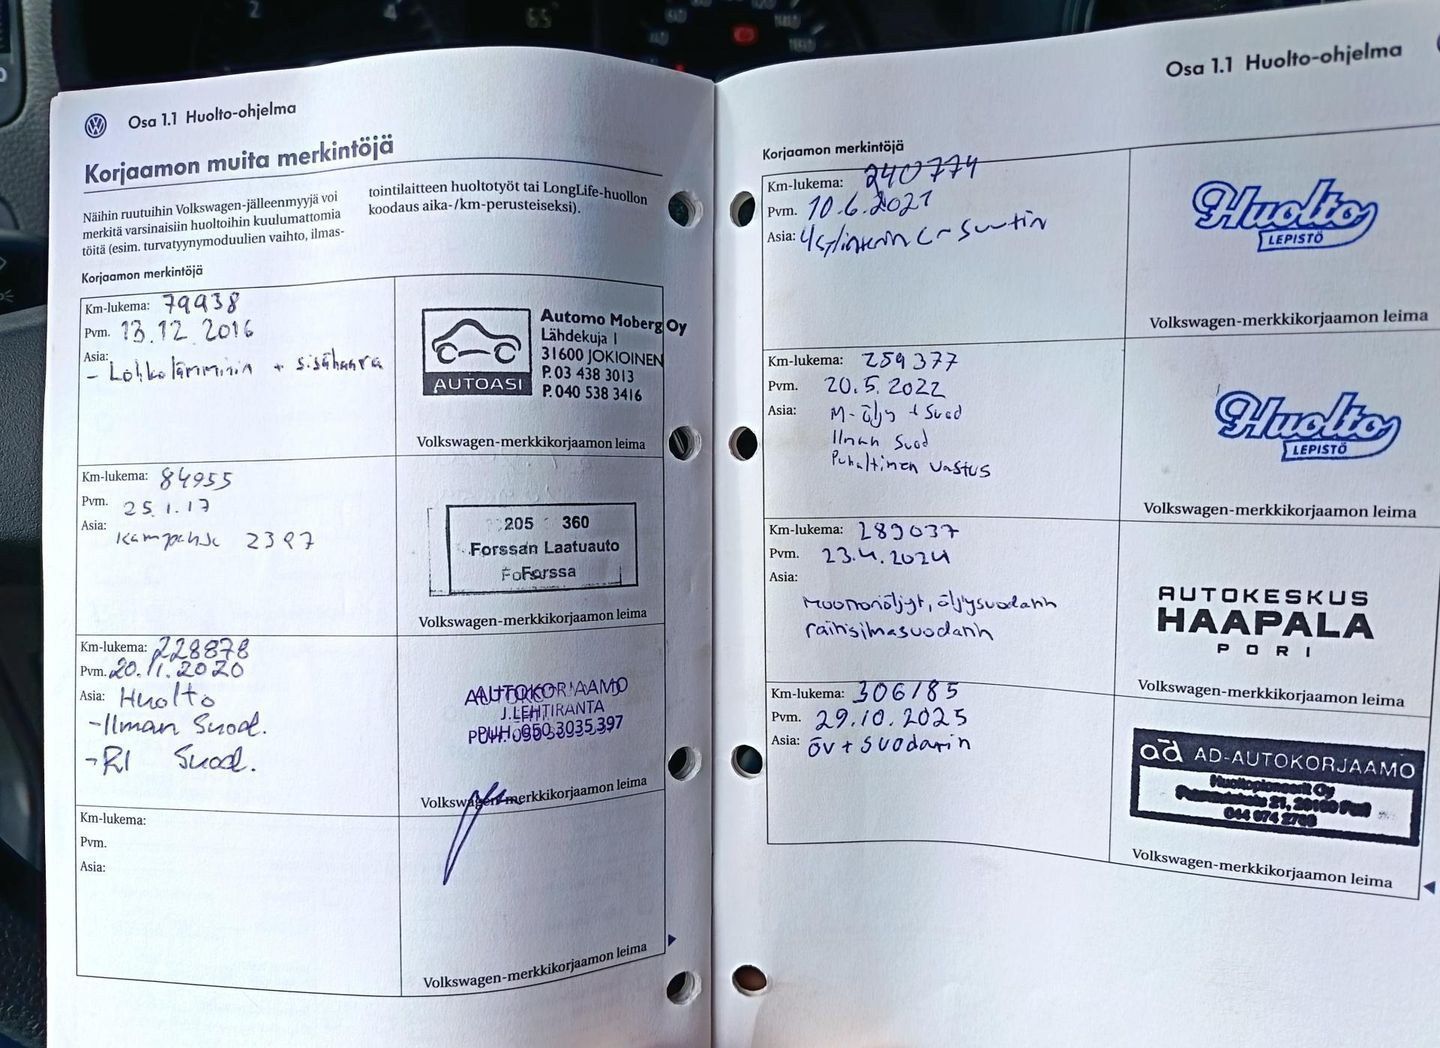 Osa 1.1 Huolto-ohjelma
Korjaamon muita merkintöjä
Näihin ruutuihin Volkswagen-jälleenmyyjä voi
merkitä varsinaisiin huoltoihin kuulumattomia
töitä (esim. turvatyynymoduulien vaihto, ilmas-
tointilaitteen huoltotyöt tai LongLife-huollon
koodaus aika-/km-perusteiseksi).
Korjaamon merkintöjä
Km-lukema: 79938
Pvm. 13.12 2016
Asia:
- Lohkolämmitin + sisähaara
AUTOASI
Automo Moberg Oy
Lähdekuja 1
31600 JOKIOINEN
P. 03 438 3013
P. 040 538 3416
Volkswagen-merkkikorjaamon leima
Km-lukema: 84955
Pvm. 25.1.17
Asia:
2397
205 360
Forssan Laatuauto
Forssa
Volkswagen-merkkikorjaamon leima
Km-lukema: 228878
Pvm. 20.1.2020
Asia: Huolto
- Ilman Suod.
- RI Suod.
AUTOKORJAAMO
J. LEHTIRANTA
PUH. 050 3035 397
Volkswagen-merkkikorjaamon leima
Km-lukema:
Pvm.
Asia:
Volkswagen-merkkikorjaamon leima
Osa 1.1 Huolto-ohjelma
Korjaamon merkintöjä
Km-lukema: 240774
Pvm. 10.6.2021
Asia: 4 Suutin
Huolto
LEPISTÖ
Volkswagen-merkkikorjaamon leima
Km-lukema: 259377
Pvm. 20.5.2022
Asia: M-öljy + Suod
Ilman Suod
Puhaltimen vastus
Huolto
LEPISTÖ
Volkswagen-merkkikorjaamon leima
Km-lukema: 289037
Pvm. 23.4.2024
Asia:
Moottoriöljyt, öljysuodatin
raitisilmasuodatin
AUTOKESKUS
HAAPALA
PORI
Volkswagen-merkkikorjaamon leima
Km-lukema: 306185
Pvm. 29.10.2025
Asia: öv + suodatin
ad AD-AUTOKORJAAMO
Huoltopioneerit Oy
21, 28100 Pori
Volkswagen-merkkikorjaamon leima